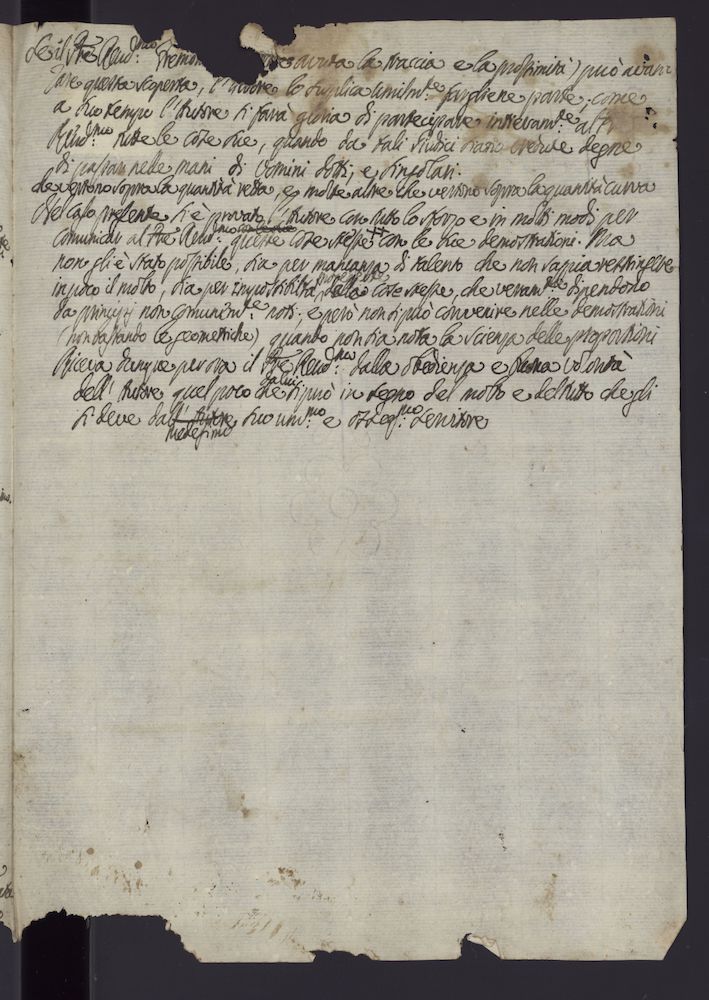 Se il P.re Rev.mo avuta la traccia e la prossimità) può avan
zare questa scoperta, l'Autore lo supplica umilm.te fargliene parte; come
a suo tempo l'Autore si farà gloria di partecipare interam.te al P.
Rev.mo tutte le cose sue, quando da tali Giudici siano credute degne
di passar nelle mani di Uomini dotti, e singolari.
che vertono sopra la quantità retta, e molte altre che vertono sopra la quantità curva
Del caso presente si è provato l'Autore con tutto lo sforzo e in molti modi per
comunicar al P.re Rev.mo queste cose stesse con le sue demostrazioni. Ma
non gli è stato possibile, sia per mancanza di talento che non sappia restringere
in poco il molto, sia per impossibilità delle cose stesse, che veram.te dipendono
da principij non comunem.te noti; e però non si può convenire nelle demostrazioni
(non bastando le geometriche) quando non sia nota la scienza delle proporzioni
Riceva dunque per ora il P.re Rev.mo dalla obedienza e volontà
dell'Autore quel poco che si può in segno del molto e del tutto che gli
si deve dall' Autore suo um.mo e oseq.mo Servitore
Medesimo